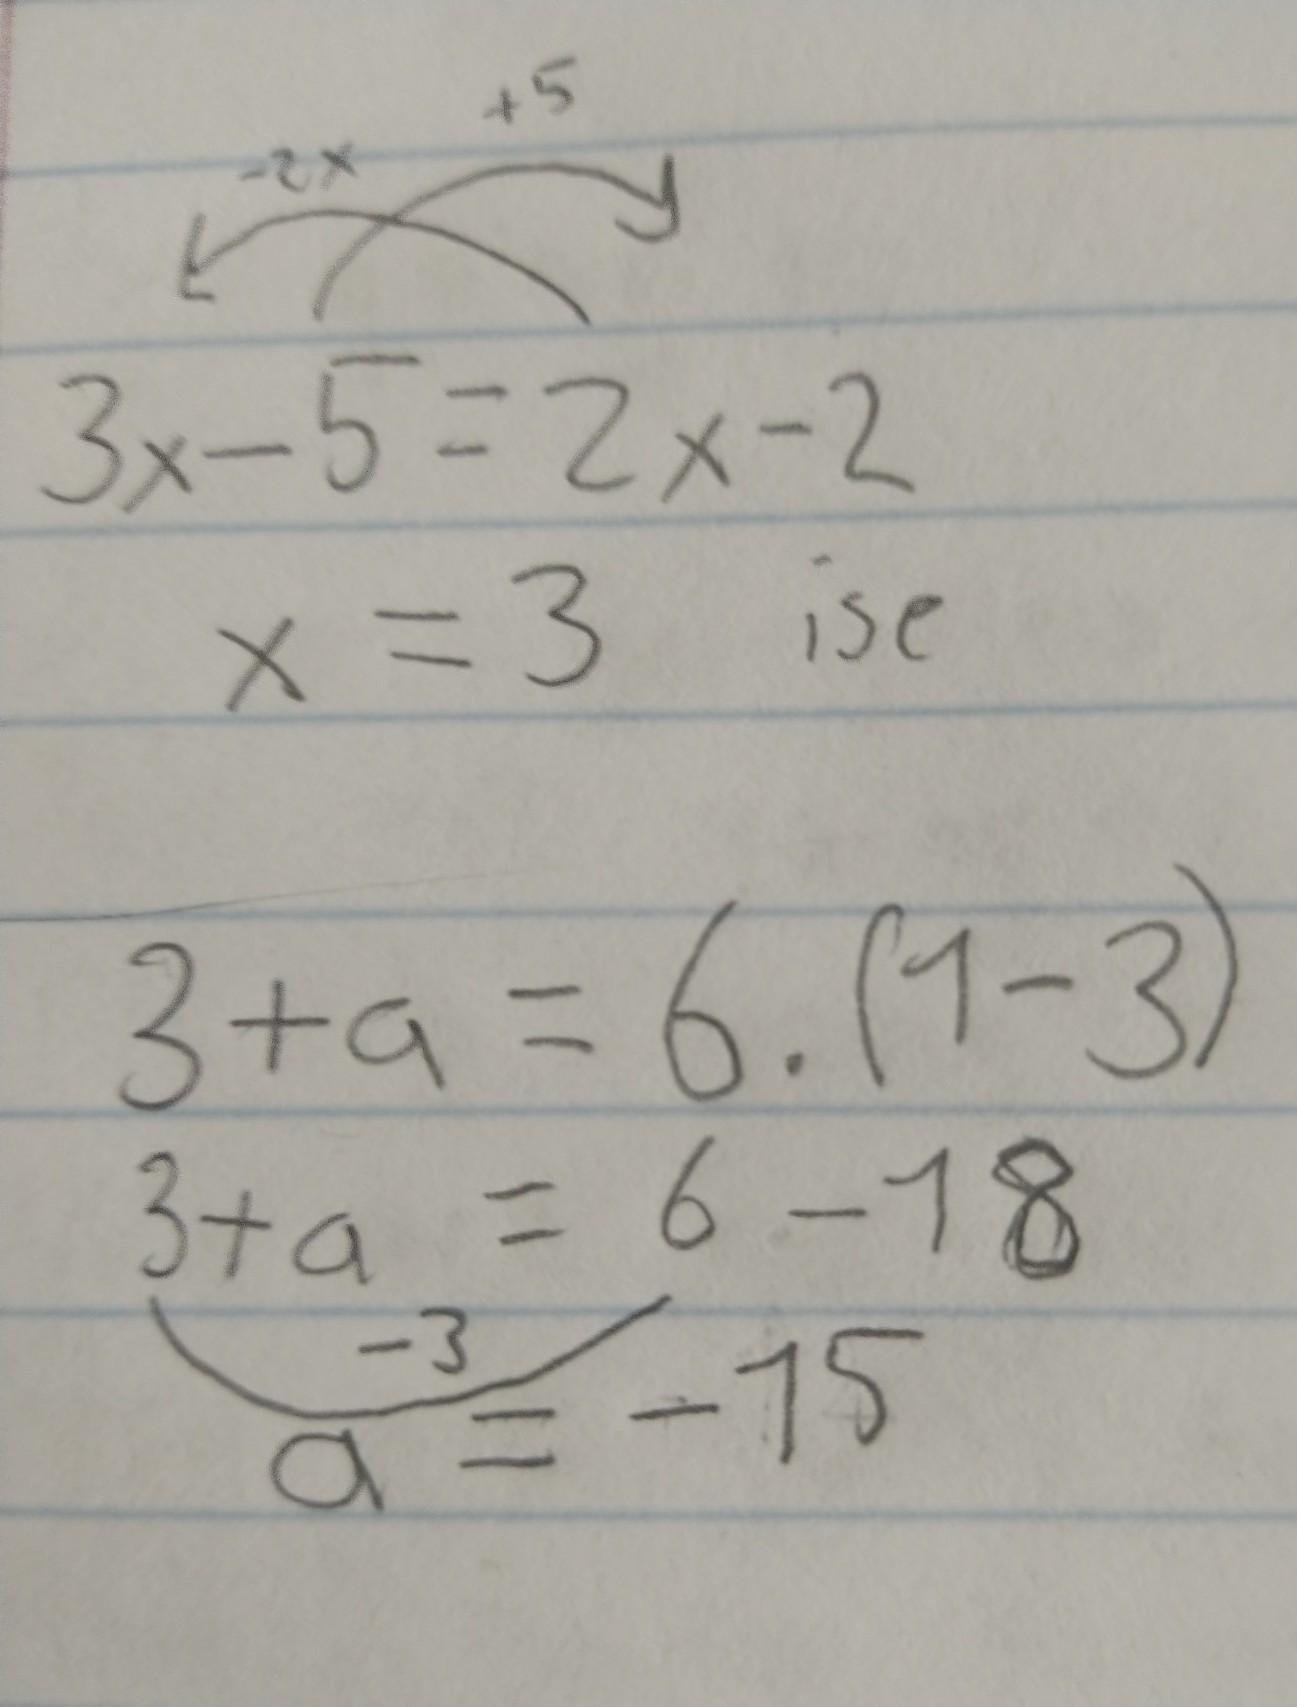 +5
-2x
3x-5=2x-2
x = 3 ise
3+a = 6.(1-3)
3+a = 6-18
-3
a = -15